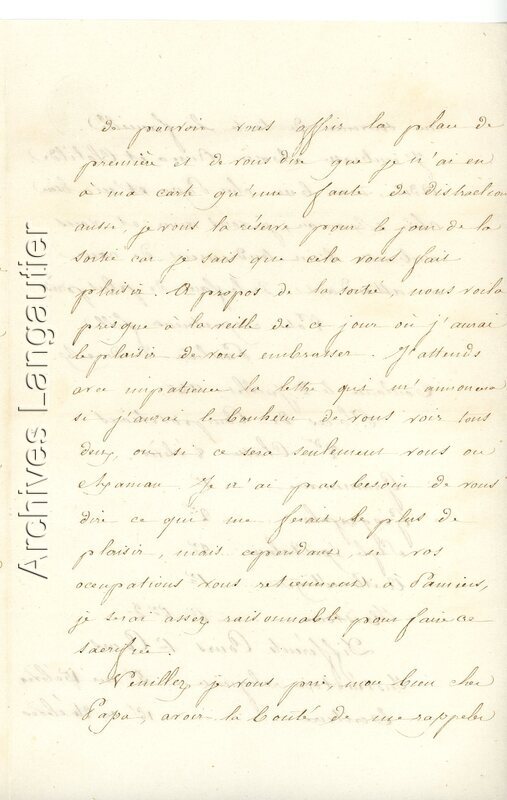 de pouvoir vous offrir la place de
première et de vous dire que je n'ai eu
à ma carte qu'une faute de distraction
aussi, je vous la réserve pour le jour de la
sortie car je sais que cela vous fait
plaisir. A propos de la sortie nous voilà
presque à la veille de ce jour où j'aurai
le plaisir de vous embrasser. J'attends
avec impatience la lettre qui m'annoncera
si j'aurai le bonheur de vous voir tous
deux, ou si ce sera seulement vous ou
Maman. Je n'ai pas besoin de vous
dire ce qui me ferait le plus de
plaisir, mais cependant, si vos
occupations vous retiennent à Pamiers,
je serai assez raisonnable pour faire ce
sacrifice.
Veuillez, je vous prie, mon bien cher
Papa, avoir la bonté de me rappeler
Archives Langautier